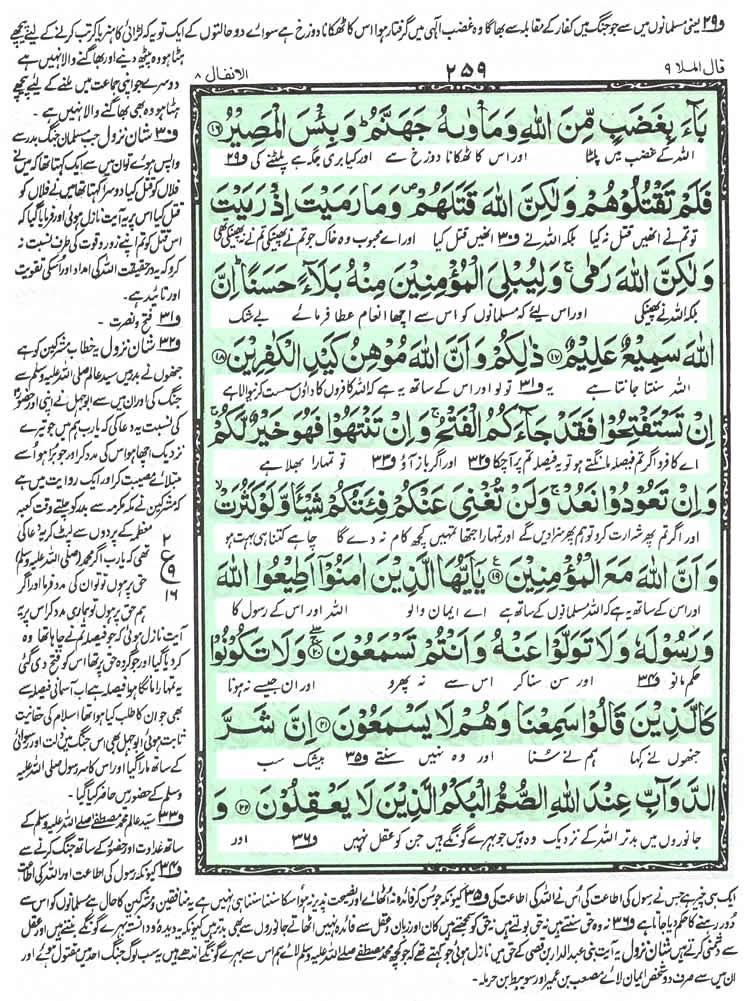 و۲۹ یعنی مسلمانوں میں سے جو جنگ میں کفار کے مقابلہ سے بھاگا وہ غضب الٰہی میں گرفتار ہوا اس کا ٹھکانا دوزخ ہے سوائے دو حالتوں کے ایک تو یہ کہ لڑائی کا ہنر یا کرتب کرنے کے لیئے پیچھے
ہٹا ہو وہ پیٹھ دینے اور بھاگنے والا نہیں ہے
دوسرے جو اپنی جماعت میں ملنے کے لیئے پیچھے
ہٹا ہو وہ بھی بھاگنے والا نہیں ہے
قال الملا ۹
۲۵۹
الانفال ۸
بَآءَ بِغَضَبٍ مِّنَ اللّٰهِ وَمَاْوٰىهُ جَهَنَّمُ ؕ وَبِئْسَ الْمَصِيْرُ ۝۱۶
اللہ کے غضب میں پلٹا اور اس کا ٹھکانا دوزخ ہے اور کیا بری جگہ ہے پلٹنے کی و۲۹
فَلَمْ تَقْتُلُوْهُمْ وَلٰكِنَّ اللّٰهَ قَتَلَهُمْ ۪ وَمَا رَمَيْتَ اِذْ رَمَيْتَ
تو تم نے انھیں قتل نہ کیا بلکہ اللہ نے و۳۰ انھیں قتل کیا اور اے محبوب وہ خاک جو تم نے پھینکی تم نے نہ پھینکی تھی
وَلٰكِنَّ اللّٰهَ رَمٰى ۚ وَلِيُبْلِيَ الْمُؤْمِنِيْنَ مِنْهُ بَلَآءً حَسَنًا ؕ اِنَّ
بلکہ اللہ نے پھینکی اور اس لیئے کہ مسلمانوں کو اس سے اچھا انعام عطا فرمائے بے شک
اللّٰهَ سَمِيْعٌ عَلِيْمٌ ۝۱۷ ذٰلِكُمْ وَاَنَّ اللّٰهَ مُوْهِنُ كَيْدِ الْكٰفِرِيْنَ ۝۱۸
اللہ سنتا جانتا ہے یہ و۳۱ تو لو اور اس کے ساتھ یہ ہے کہ اللہ کافروں کا داؤں سست کرنیوالا ہے
اِنْ تَسْتَفْتِحُوْا فَقَدْ جَآءَكُمُ الْفَتْحُ ۚ وَاِنْ تَنْتَهُوْا فَهُوَ خَيْرٌ لَّكُمْ ۚ
اے کافرو اگر تم فیصلہ مانگتے ہو تو یہ فیصلہ تم پر آچکا و۳۲ اور اگر باز آؤ و۳۳ تو تمہارا بھلا ہے
وَاِنْ تَعُوْدُوْا نَعُدْ ۚ وَلَنْ تُغْنِيَ عَنْكُمْ فِئَتُكُمْ شَيْـًٔا وَّلَوْ كَثُرَتْ ۙ
اور اگر تم پھر شرارت کرو تو ہم پھر سزا دیں گے اور تمہارا جتھا تمہیں کچھ کام نہ دے گا چاہے کتنا ہی بہت ہو
وَاَنَّ اللّٰهَ مَعَ الْمُؤْمِنِيْنَ ۝۱۹ يٰٓاَيُّهَا الَّذِيْنَ اٰمَنُوْٓا اَطِيْعُوا اللّٰهَ
اور اس کے ساتھ یہ ہے کہ اللہ مسلمانوں کے ساتھ ہے اے ایمان والو اللہ اور اس کے رسول کا
وَرَسُوْلَهٗ وَلَا تَوَلَّوْا عَنْهُ وَاَنْتُمْ تَسْمَعُوْنَ ۝۲۰ وَلَا تَكُوْنُوْا
حکم مانو و۳۴ اور سن سنا کر اس سے نہ پھرو اور ان جیسے نہ ہونا
كَالَّذِيْنَ قَالُوْا سَمِعْنَا وَهُمْ لَا يَسْمَعُوْنَ ۝۲۱ اِنَّ شَرَّ
جنھوں نے کہا ہم نے سُنا اور وہ نہیں سنتے و۳۵ بیشک سب
الدَّوَآبِّ عِنْدَ اللّٰهِ الصُّمُّ الْبُكْمُ الَّذِيْنَ لَا يَعْقِلُوْنَ ۝۲۲ وَ
جانوروں میں بدتر اللہ کے نزدیک وہ ہیں جو بہرے گونگے ہیں جن کو عقل نہیں و۳۶ اور
و۳۰ شان نزول جب مسلمان جنگ بدر سے
واپس ہوئے تو ان میں سے ایک کہتا تھا کہ میں نے
فلاں کو قتل کیا دوسرا کہتا تھا میں نے فلاں کو
قتل کیا اس پر یہ آیت نازل ہوئی اور فرمایا گیا کہ
اس قتل کو تم اپنے زور و قوت کی طرف نسبت نہ
کرو کہ یہ درحقیقت اللہ کی امداد اور اسکی تقویت
اور تائید ہے۔
و۳۱ فتح و نصرت
و۳۲ شان نزول یہ خطاب مشرکین کو ہے
جنھوں نے بدر میں سید عالم صلی اللہ علیہ وسلم سے
جنگ کی اور ان میں سے ابوجہل نے اپنی اور حضور
کی نسبت یہ دعا کی کہ یارب ہم میں جو تیرے
نزدیک اچھا ہو اس کی مدد کر اور جو برا ہو اُسے
مبتلائے مصیبت کر اور ایک روایت میں ہے
کہ مشرکین نے مکہ مکرمہ سے بدر کو چلتے وقت کعبہ
معظمہ کے پردوں سے لپٹ کر یہ دعا کی
تھی کہ یارب اگر محمد (صلی اللہ علیہ وسلم)
حق پر ہوں تو ان کی مدد فرما اور اگر
ہم حق پر ہوں تو ہماری مدد کر اس پر یہ
آیت نازل ہوئی کہ جو فیصلہ تم نے چاہا تھا وہ
کر دیا گیا اور جو گروہ حق پر تھا اس کو فتح دی گئی
یہ تمہارا مانگا ہوا فیصلہ ہے اب آسمانی فیصلہ سے
بھی جو ان کا طلب کیا ہوا تھا اسلام کی حقانیت
ثابت ہوئی ابوجہل بھی اس جنگ میں ذلت اور رسوائی
کے ساتھ مارا گیا اور اس کا سر رسول صلی اللہ علیہ
وسلم کے حضور میں حاضر کیا گیا۔
و۳۳ سید عالم محمد مصطفےٰ صلی اللہ علیہ وسلم کے
ساتھ عداوت اور حضور کے ساتھ جنگ کرنے سے
و۳۴ کیونکہ رسول کی اطاعت اور اللہ کی اطاعت
۲
ع
۹
۱۶
ایک ہی چیز ہے جس نے رسول کی اطاعت کی اُس نے اللہ کی اطاعت کی و۳۵ کیونکہ جو سُن کر فائدہ نہ اُٹھائے اور نصیحت پذیر نہ ہو اسکا سننا سننا ہی نہیں ہے یہ منافقین و مشرکین کا حال ہے مسلمانوں کو اس سے
دُور رہنے کا حکم دیا جاتا ہے و۳۶ نہ وہ حق سنتے ہیں نہ حق بولتے ہیں نہ حق کو سمجھتے ہیں کان اور زبان و عقل سے فائدہ نہیں اٹھاتے جانوروں سے بھی بدتر ہیں کیونکہ یہ دیدہ و دانستہ بہرے گونگے بنتے ہیں اور عقل
سے دشمنی کرتے ہیں شان نزول یہ آیت بنی عبدالدار بن قصی کے حق میں نازل ہوئی جو کہتے تھے کہ جو کچھ محمد مصطفےٰ صلی اللہ علیہ وسلم لائے ہم اس سے بہرے گونگے اندھے ہیں یہ سب لوگ جنگ احد میں مقتول ہوئے اور
ان میں سے صرف دو شخص ایمان لائے مصعب بن عمیر اور سویبط بن حرملہ۔